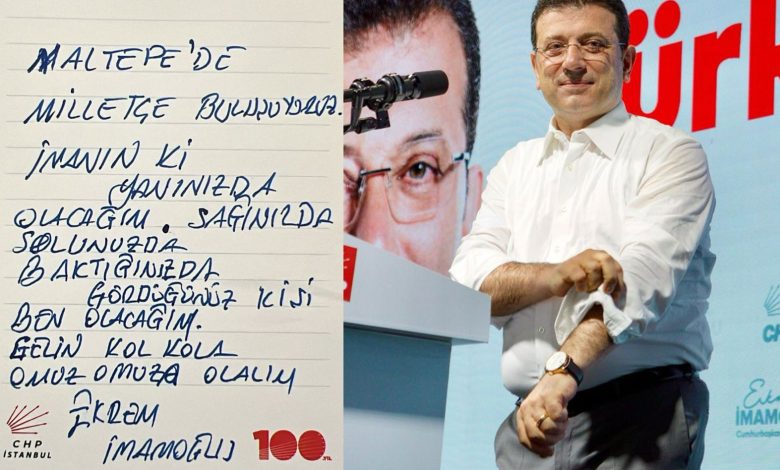 MALTEPE'DE
MİLLETÇE BULUŞUYORUZ.
İNANIN Kİ
YANINIZDA
OLACAĞIM. SAĞINIZDA
SOLUNUZDA
BAKTIĞINIZDA
GÖRDÜĞÜNÜZ KİŞİ
BEN OLACAĞIM.
GELİN KOL KOLA
OMUZ OMUZA OLALIM
EKREM
İMAMOĞLU
CHP
İSTANBUL
100.
YIL
ürk
CH
İMAMO
Cumhurbaşka